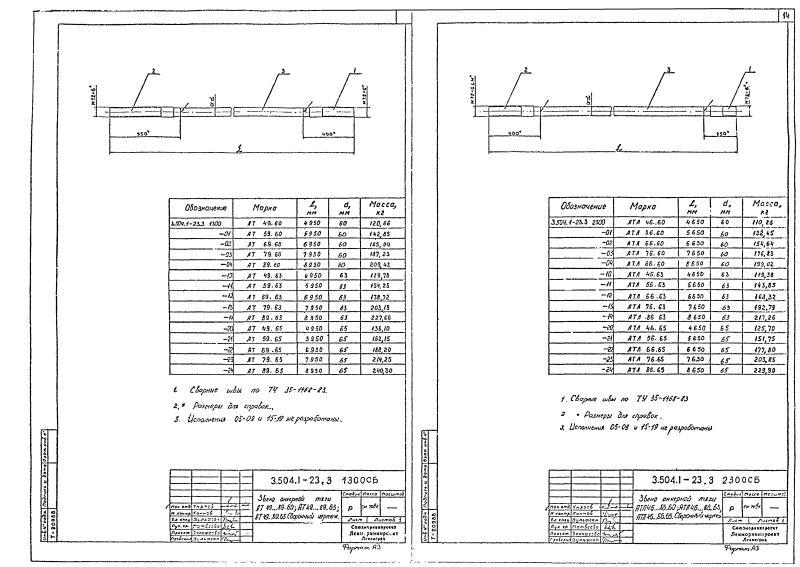 14
2
3
1
950*
400*
L
Обозначение Марка L, мм d, мм Масса, кг
3.504.1-23.3 1300 АТ 49.60 4950 60 120,66
-01 АТ 59.60 5950 60 142,85
-02 АТ 69.60 6950 60 165,04
-03 АТ 79.60 7950 60 187,23
-04 АТ 89.60 8950 60 209,42
-10 АТ 49.63 4950 63 129,78
-11 АТ 59.63 5950 63 154,25
-12 АТ 69.63 6950 63 178,72
-13 АТ 79.63 7950 63 203,19
-14 АТ 89.63 8950 63 227,66
-20 АТ 49.65 4950 65 136,10
-21 АТ 59.65 5950 65 162,15
-22 АТ 69.65 6950 65 188,20
-23 АТ 79.65 7950 65 214,25
-24 АТ 89.65 8950 65 240,30
1. Сварные швы по ТУ 35-1168-83.
2.* Размеры для справок.
3. Исполнения 05-09 и 15-19 не разработаны.
3.504.1-23.3 1300СБ
Звено анкерной тяги
АТ 49...89.60; АТ49...89.63;
АТ49..89.65 Сборочный чертеж.
Стадия Масса Масштаб
Р см. табл. —
Лист Листов 1
Союзморниипроект
Ленморниипроект
Ленинград
Формат А3
Т-20988
2
3
1
400*
950*
L
Обозначение Марка L, мм d, мм Масса, кг
3.504.1-23.3 2300 АТЛ 46.60 4650 60 110,26
-01 АТЛ 56.60 5650 60 132,45
-02 АТЛ 66.60 6650 60 154,64
-03 АТЛ 76.60 7650 60 176,83
-04 АТЛ 86.60 8650 60 199,02
-10 АТЛ 46.63 4650 63 119,38
-11 АТЛ 56.63 5650 63 143,85
-12 АТЛ 66.63 6650 63 168,32
-13 АТЛ 76.63 7650 63 192,79
-14 АТЛ 86.63 8650 63 217,26
-20 АТЛ 46.65 4650 65 125,70
-21 АТЛ 56.65 5650 65 151,75
-22 АТЛ 66.65 6650 65 177,80
-23 АТЛ 76.65 7650 65 203,85
-24 АТЛ 86.65 8650 65 229,90
1. Сварные швы по ТУ 35-1168-83
2 * Размеры для справок.
3. Исполнения 05-09 и 15-19 не разработаны
3.504.1-23.3 2300СБ
Звено анкерной тяги
АТЛ46...86.60; АТЛ46...86.63,
АТЛ46...86.65. Сборочный чертеж
Стадия Масса Масштаб
Р см. табл. —
Лист Листов 1
Союзморниипроект
Ленморниипроект
Ленинград
Формат А3
Т-20988